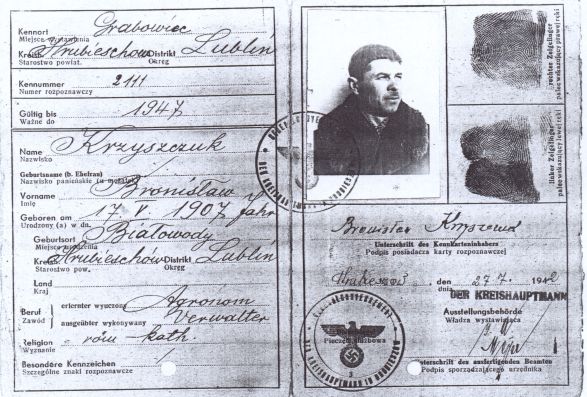 Kennort Grabowiec
Miejsce wystawienia
Kreish. Hrubieschow Distrikt Lublin
Starostwo powiat. Okręg
Kennummer 2111
Numer rozpoznawczy
Gültig bis 1947
Ważne do
Name Krzyszczuk
Nazwisko
Geburtsname (b. Ehefrau)
Nazwisko panieńskie (u mężatki)
Vorname Bronisław
Imię
Geboren am 17 V 1907 Jahr
Urodzony (a) w dn.
Geburtsort Białowody
Miejsce urodzenia
Kreish. Hrubieschow Distrikt Lublin
Starostwo pow. Okręg
Land
Kraj
Beruf erlernter wyuczony Agronom
Zawód ausgeübter wykonywany Verwalter
Religion röm-kath.
Wyznanie
Besondere Kennzeichen
Szczególne znaki rozpoznawcze
rechter Zeigefinger
palec wskazujący prawej ręki
linker Zeigefinger
palec wskazujący lewej ręki
Bronisław
Unterschrift des Kennkarteninhabers
Podpis posiadacza karty rozpoznawczej
den 27 7. 194
dnia
DER KREISHAUPTMANN
Ausstellungsbehörde
Władza wystawiająca
Pieczęć służbowa
Unterschrift des ausfertigenden Beamten
Podpis sporządzającego urzędnika
DER KREISHAUPTMANN IN HRUBIESZOW